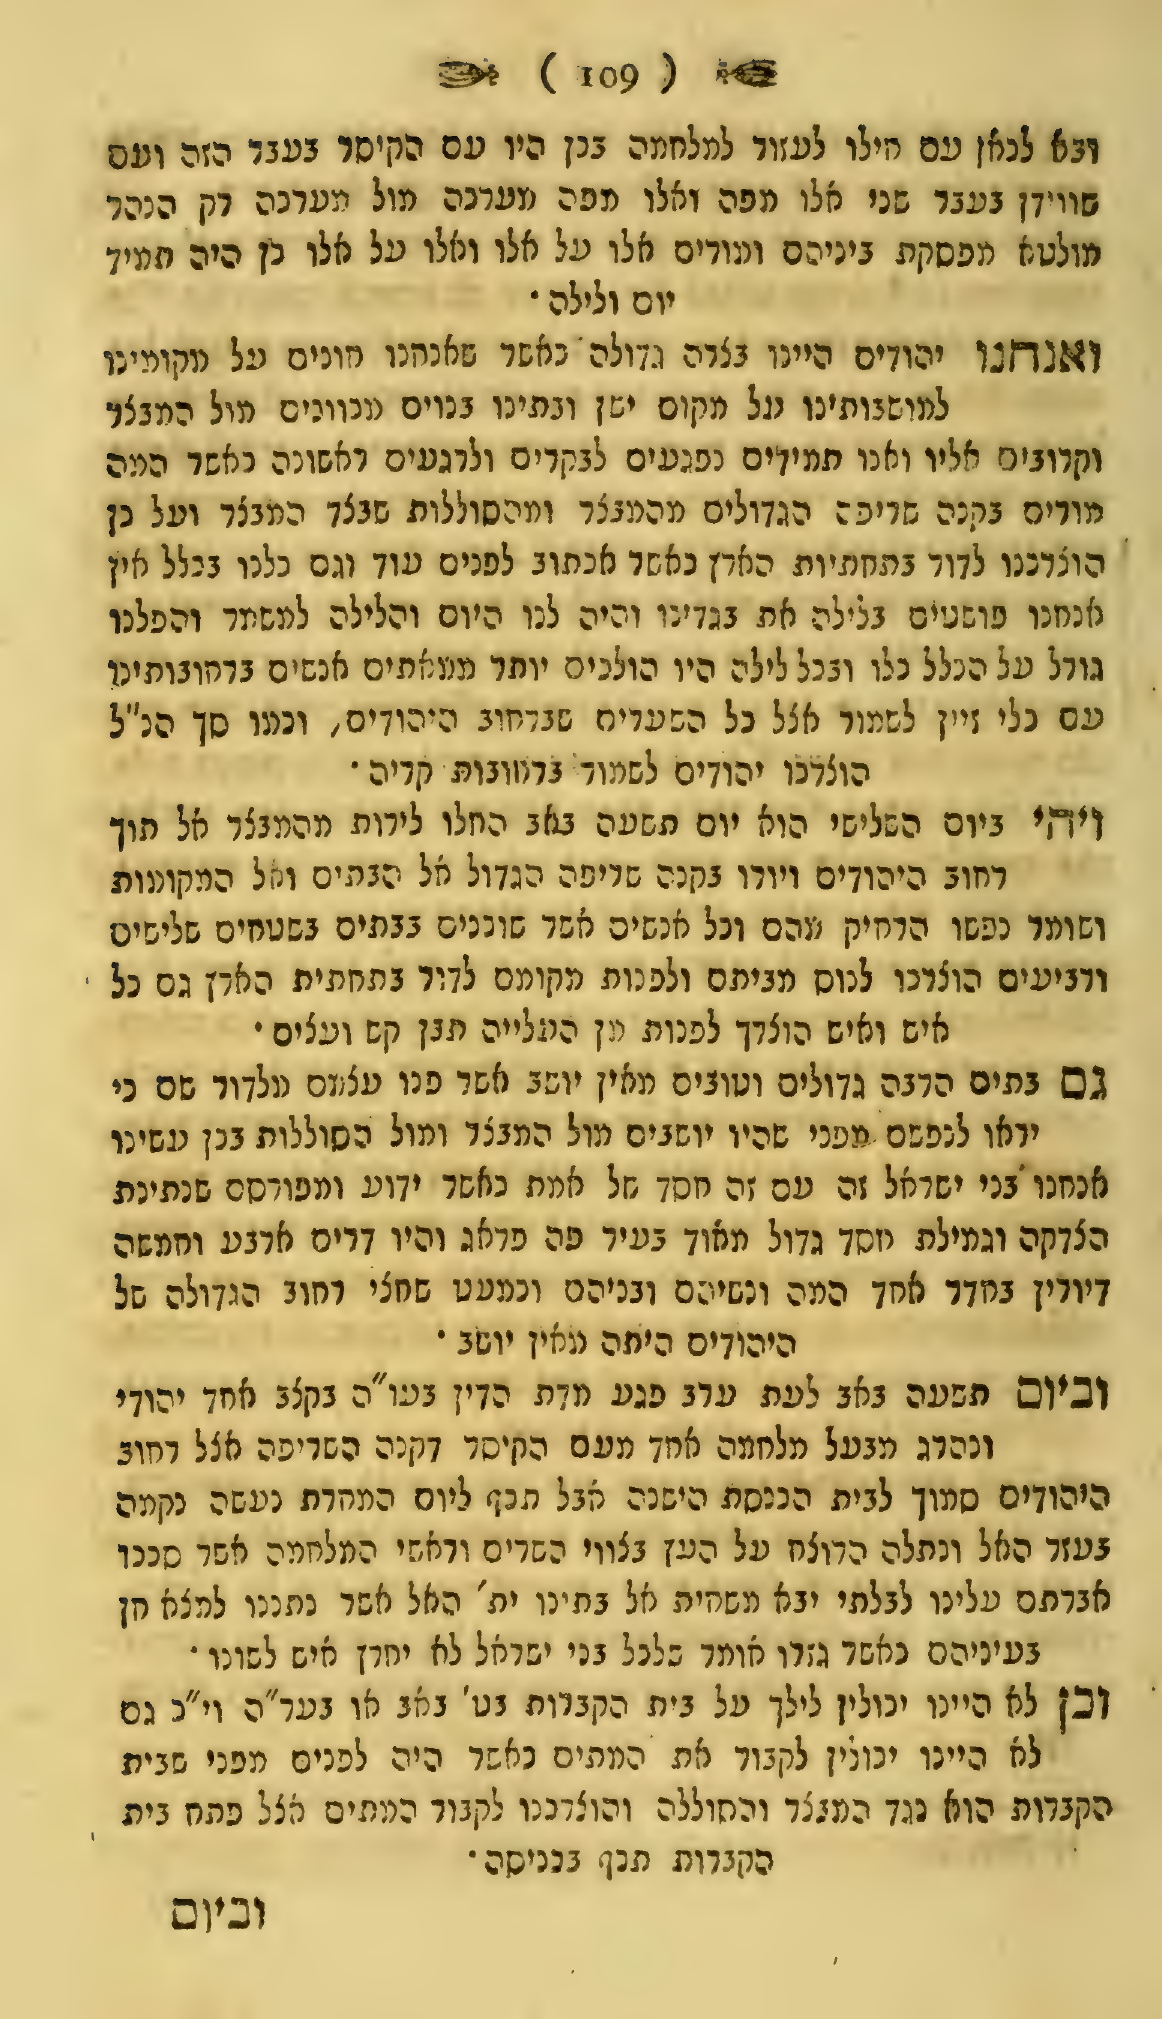 ( 109 )
ובא לכאן עם חילו לעזור למלחמה בכן היו עם הקיסר בעבר הזה ועם
שווידן בעבר שני אלו מפה ואלו מפה מערכה מול מערכה רק הנהר
מולטא מפסקת ביניהם ומורים אלו על אלו ואלו על אלו כן היה תמיד
יום ולילה •
ואנחנו יהודים היינו בצרה גדולה כאשר שאנחנו חונים על מקומינו
למושבותינו על מקום ישן ובתינו בנוים מכוונים מול המבצר
וקרובים אליו ואנו תמידים נפגעים לבקרים ולרגעים ראשונה כאשר המה
מורים בקנה שריפה הגדולים מהמבצר ומהסוללות שבצד המבצר ועל כן
הוצרכנו לדור בתחתיות הארץ כאשר אכתוב לפנים עוד וגם כלנו בכלל אין
אנחנו פושטים בלילה את בגדינו והיה לנו היום והלילה למשמר והפלנו
גורל על הכלל כלו ובכל לילה היו הולכים יותר ממאתים אנשים ברחובותינו
עם כלי זיין לשמור אצל כל השערים שברחוב היהודים, וכמו סך הנ"ל
הוצרכו יהודים לשמור ברחובות קריה •
ויהי ביום השלישי הוא יום תשעה באב החלו לירות מהמבצר אל תוך
רחוב היהודים ויורו בקנה שריפה הגדול אל הבתים ואל המקומות
ושומר נפשו הרחיק מהם וכל אנשים אשר שוכנים בבתים בשטחים שלישים
ורביעים הוצרכו לנוס מביתם ולפנות מקומם לדור בתחתית הארץ גם כל
איש ואיש הוצרך לפנות מן העלייה תבן קש ועצים •
גם בתים הרבה גדולים וטובים מאין יושב אשר פנו עצמם מלדור שם כי
יראו לנפשם מפני שהיו יושבים מול המבצר ומול הסוללות בכן עשינו
אנחנו בני ישראל זה עם זה חסד של אמת כאשר ידוע ומפורסם שנתינת
הצדקה וגמילת חסד גדול מאוד בעיר פה פראג והיו דרים ארבע וחמשה
דיורין בחדר אחד המה ונשיהם ובניהם וכמעט שחצי רחוב הגדולה של
היהודים היתה מאין יושב •
וביום תשעה באב לעת ערב פגע מדת הדין בעו"ה בקצב אחד יהודי
ונהרג מבעל מלחמה אחד מעם הקיסר דקנה השריפה אצל רחוב
היהודים סמוך לבית הכנסת הישנה אבל תכף ליום המחרת נעשה נקמה
בעזר האל ונתלה הרוצח על העץ בצווי השרים וראשי המלחמה אשר סככו
אברתם עלינו לבלתי יבא משחית אל בתינו ית' האל אשר נתננו למצא חן
בעיניהם כאשר גזרו אומר שלכל בני ישראל לא יחרץ איש לשונו •
וכן לא היינו יכולין לילך על בית הקברות בט' באב או בער"ה וי"כ גם
לא היינו יכולין לקבור את המתים כאשר היה לפנים מפני שבית
הקברות הוא נגד המבצר והסוללה והוצרכנו לקבור המתים אצל פתח בית
הקברות תכף בכניסה •
וביום